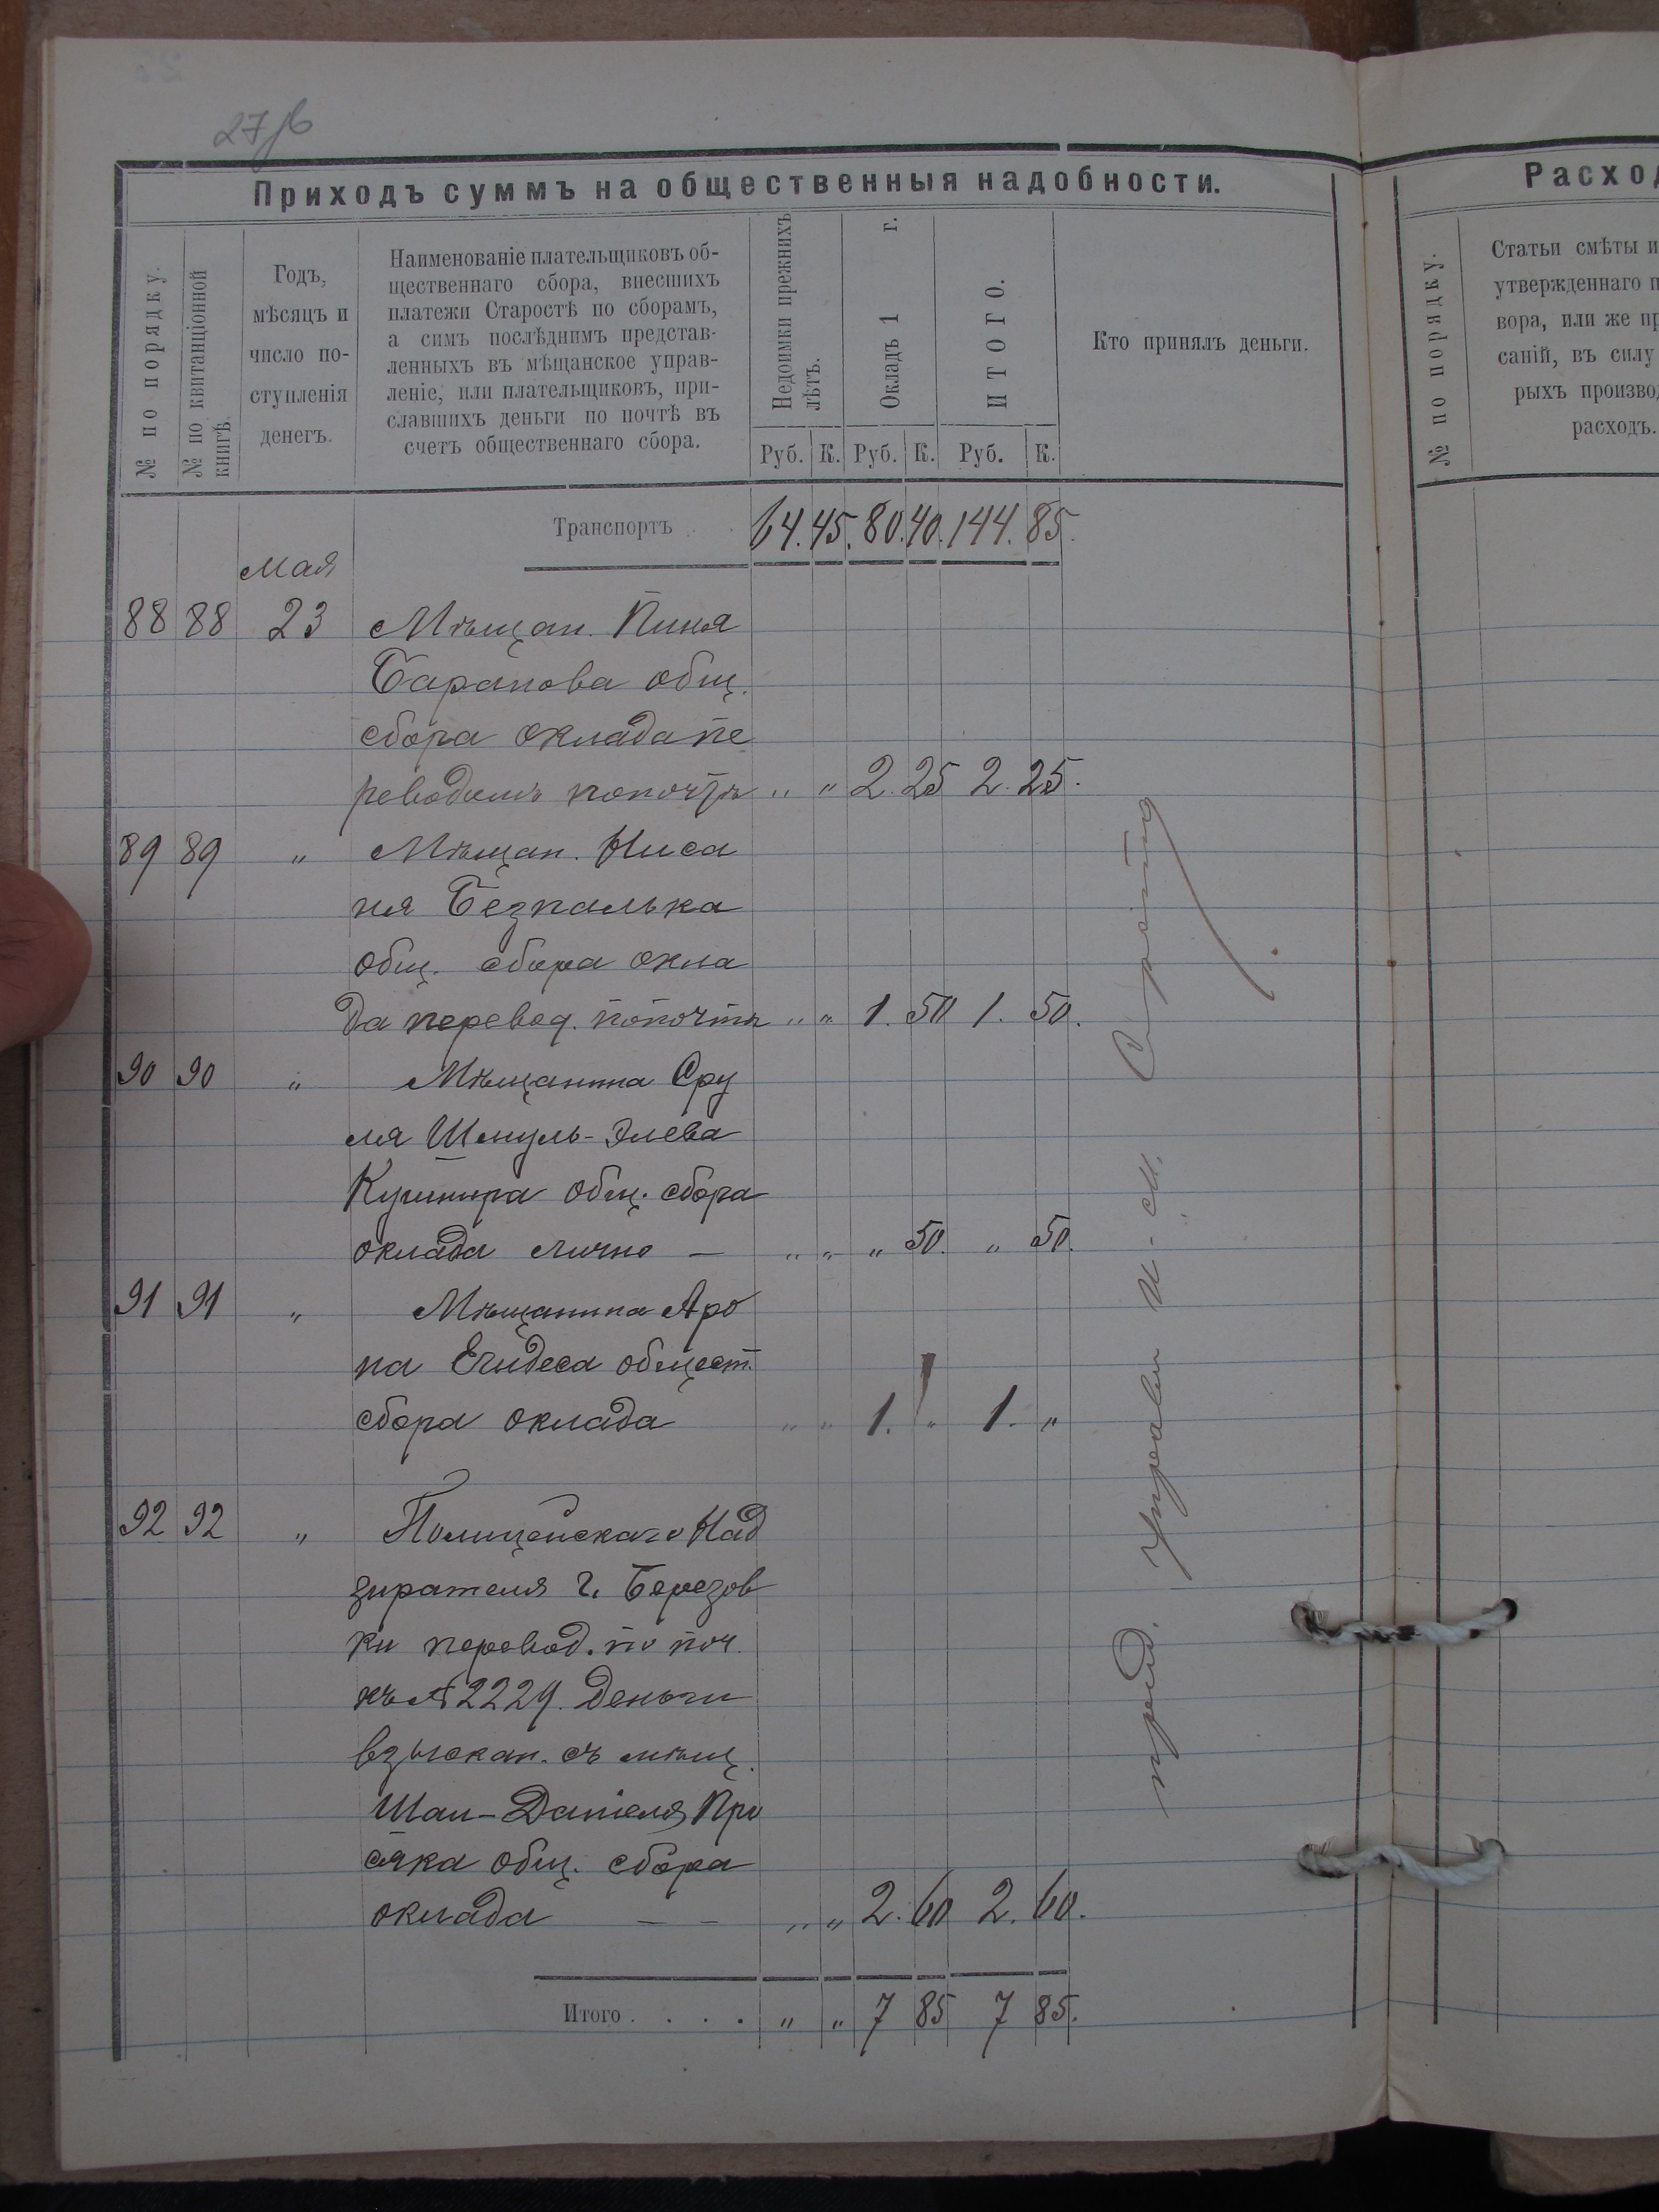 27
Приходъ суммъ на общественныя надобности.
№ по порядку.
№ по квитанціонной
книгѣ.
Годъ,
мѣсяцъ и
число по-
ступленія
денегъ.
Наименованіе плательщиковъ об-
щественнаго сбора, внесшихъ
платежи Старостѣ по сборамъ,
а симъ послѣднимъ представ-
ленныхъ въ мѣщанское управ-
леніе, или плательщиковъ, при-
славшихъ деньги по почтѣ въ
счетъ общественнаго сбора.
Недоимки прежнихъ
лѣтъ.
Окладъ 1 г.
ИТОГО.
Кто принялъ деньги.
Руб. К. Руб. К. Руб. К.
Транспортъ . . 64. 45. 80. 40. 144. 85.
Мая
88 88 23 Мѣщан. Пиня
Барапова общ.
сбора оклада пе
реводомъ по почтѣ " " 2. 25 2. 25.
89 89 " Мѣщан. Ниса
ня Безпалька
общ. сбора окла
да перевод. по почтѣ " " 1. 50 1. 50.
90 90 " Мѣщанина Сру
ля Шмуль-Элева
Кушнира общ. сбора
оклада лично — " " " 50. " 50.
91 91 " Мѣщанина Аро
на Егидеса общест.
сбора оклада " " 1. " 1. "
92 92 " Полицейскаго Над
зирателя г. Березов
ки перевод. по поч.
къ № 2229. Деньги
взыскан. съ мѣщ.
Шаи-Даніеля Про
сяка общ. сбора
оклада — — " " 2. 60 2. 60.
Итого . . . . " " 7 85 7 85.
Управы
Расход
№ по порядку.
Статьи смѣты и
утвержденнаго п
вора, или же пр
саній, въ силу
рыхъ произво
расходъ.